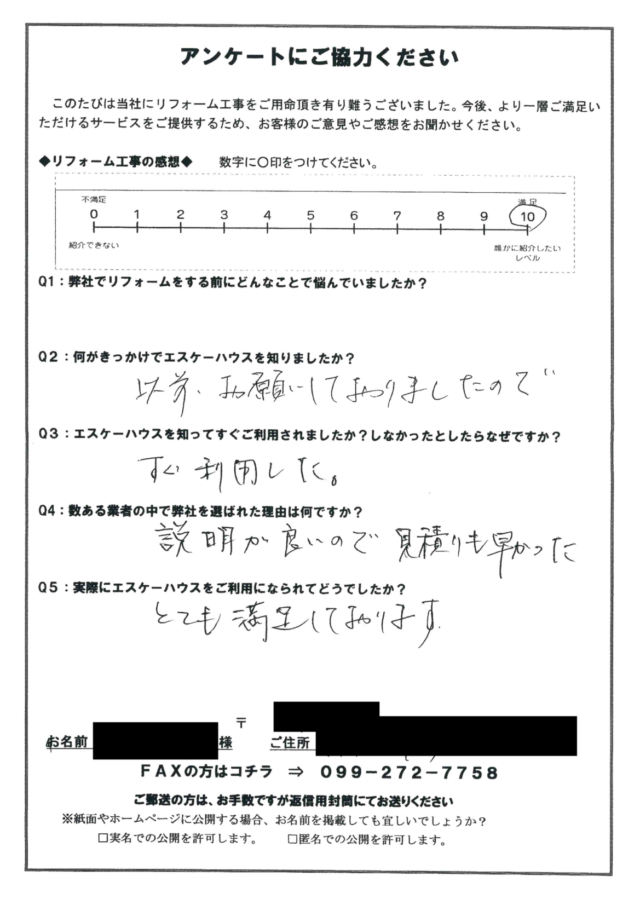 アンケートにご協力ください
このたびは当社にリフォーム工事をご用命頂き有り難うございました。今後、より一層ご満足い
ただけるサービスをご提供するため、お客様のご意見やご感想をお聞かせください。
◆リフォーム工事の感想◆　数字に〇印をつけてください。
不満足 満足
0 1 2 3 4 5 6 7 8 9 10
紹介できない 誰かに紹介したい
レベル
Q1：弊社でリフォームをする前にどんなことで悩んでいましたか？
Q2：何がきっかけでエスケーハウスを知りましたか？
以前、お願いしておりましたので
Q3：エスケーハウスを知ってすぐご利用されましたか？しなかったとしたらなぜですか？
すぐ利用した。
Q4：数ある業者の中で弊社を選ばれた理由は何ですか？
説明が良いので 見積りも早かった
Q5：実際にエスケーハウスをご利用になられてどうでしたか？
とても満足しております
〒
お名前 様 ご住所
FAXの方はコチラ ⇒ 099-272-7758
ご郵送の方は、お手数ですが返信用封筒にてお送りください
※紙面やホームページに公開する場合、お名前を掲載しても宜しいでしょうか？
□実名での公開を許可します。 □匿名での公開を許可します。